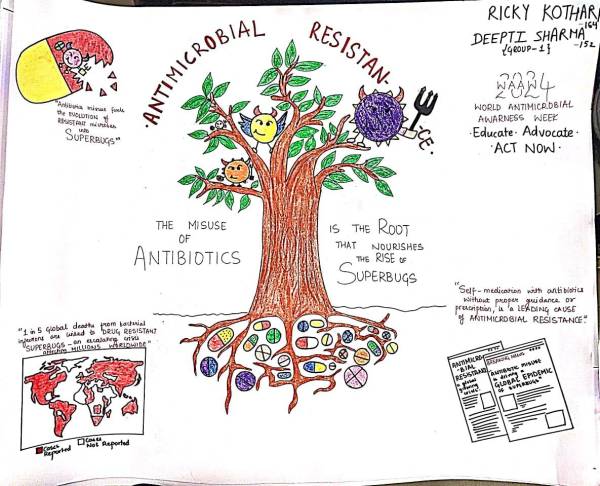 RICKY KOTHARI
-164
DEEPTI SHARMA
-152
{GROUP-1}
ANTIMICROBIAL RESISTAN-
CE.
2024
WAAW
WORLD ANTIMICROBIAL
AWARNESS WEEK
·Educate·Advocate·
·ACT NOW·
"Antibiotic misuse fuels
the EVOLUTION of
RESISTANT microbes
into
SUPERBUGS"
THE MISUSE
OF
ANTIBIOTICS
IS THE ROOT
THAT NOURISHES
THE RISE OF
SUPERBUGS
"1 in 5 global deaths from bacterial
are linked to DRUG RESISTANT
"SUPERBUGS - an escalating crisis
affecting MILLIONS WORLDWIDE"
Cases
Reported
Cases
Not Reported
"Self-medication with antibiotics
without proper guidance or
prescription, is a LEADING CAUSE
of ANTIMICROBIAL RESISTANCE"
ANTIMICRO-
BIAL
RESISTANCE
a global
crisis
BREAKING NEWS
"ANTIBIOTIC MISUSE
is driving a
GLOBAL EPIDEMIC
OF SUPERBUGS"